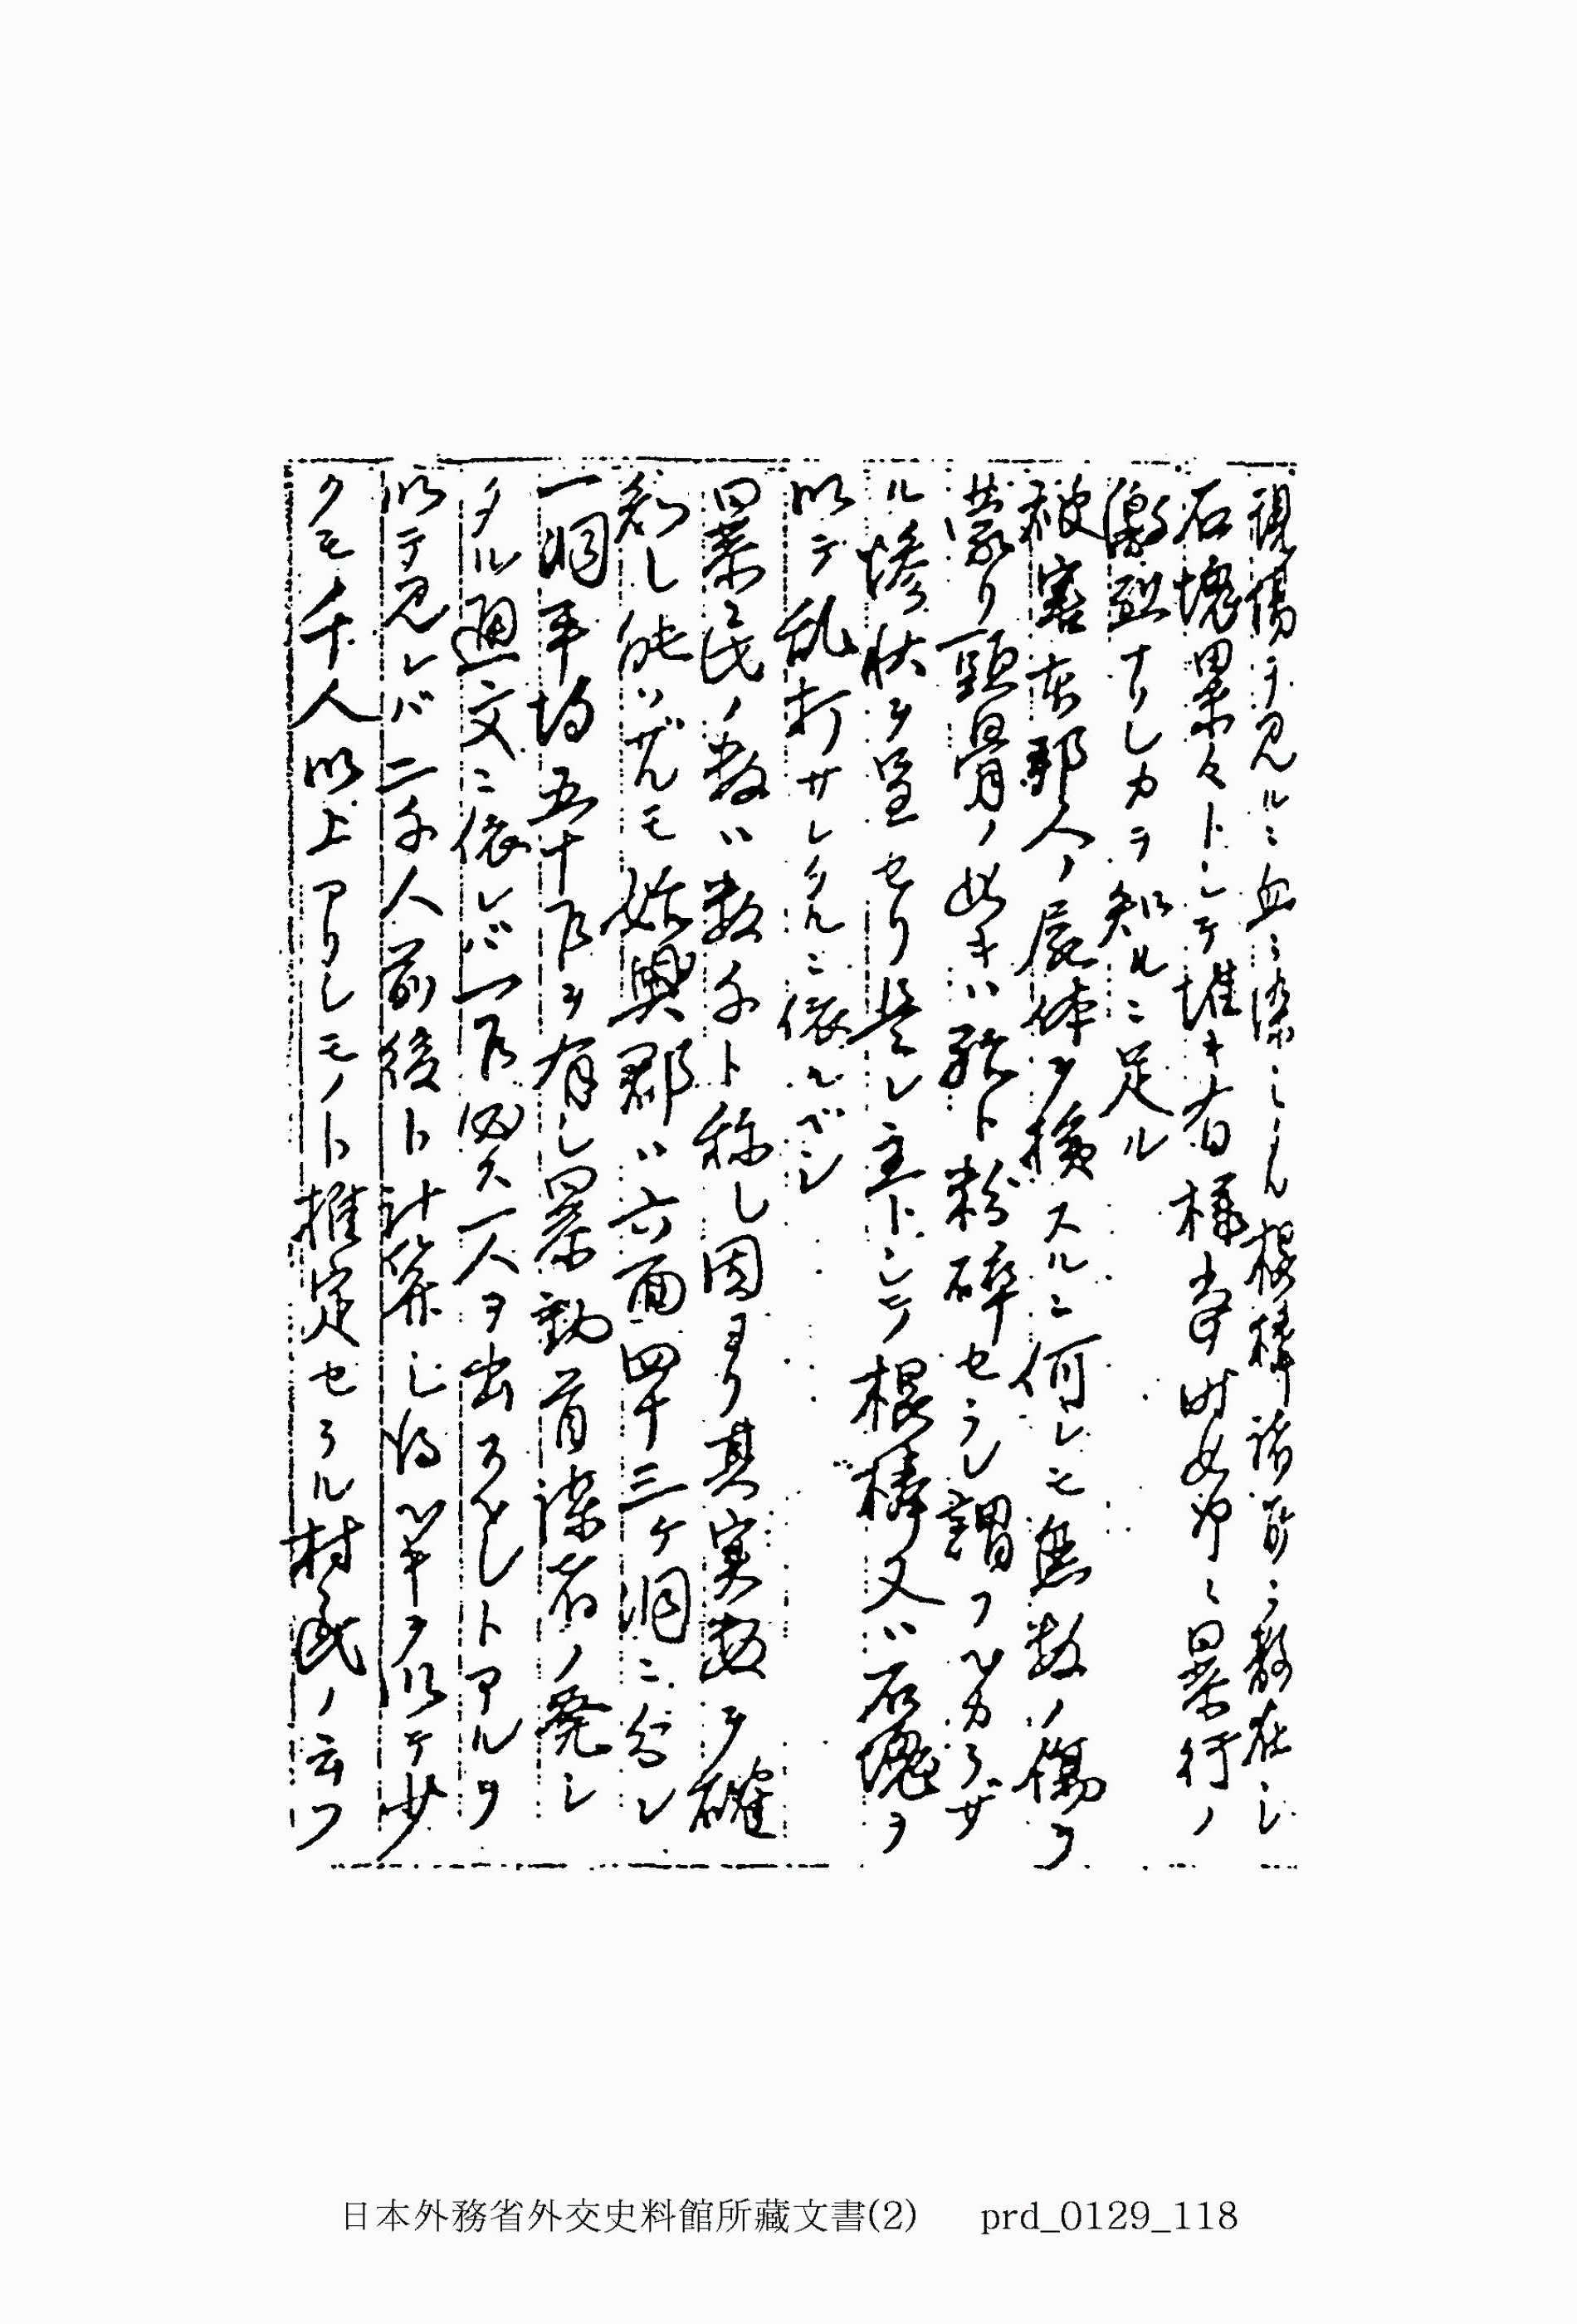 現場ヲ見ルニ血ニ染ミシ棍棒諸所ニ散在シ
石塊累々トシテ堆キ有様当時如何ニ暴行ノ
激烈ナリシカヲ知ルニ足ル
被害本邦人ノ屍体ヲ検スルニ何レモ無数ノ傷ヲ
蒙リ頭骨ノ如キハ殆ト粉砕セラレ謂フベカラザ
ル惨状ヲ呈セリ是レ主トシテ棍棒又ハ石塊ヲ
以テ乱打サレタルニ依ルベシ
暴民ノ数ハ数千ト称シ固ヨリ其実数ヲ確
知シ能ハザルモ始興郡ハ六面四十三ケ洞ニ分レ
一洞平均五十戸ヲ有シ暴動首謀者ノ発シ
タル廻文ニ依レバ一戸必ス一人ヲ出スベシトアルヲ
以テ見レバ二千人前後ト計算シ得ベキヲ以テ少
クモ千人以上アリシモノト推定セラル村民ノ云フ
日本外務省外交史料館所藏文書(2) prd_0129_118